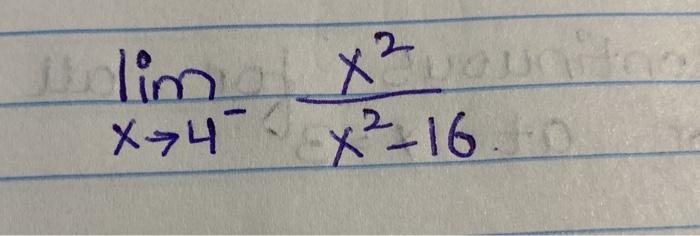 lim x→4⁻ x²/(x²-16).